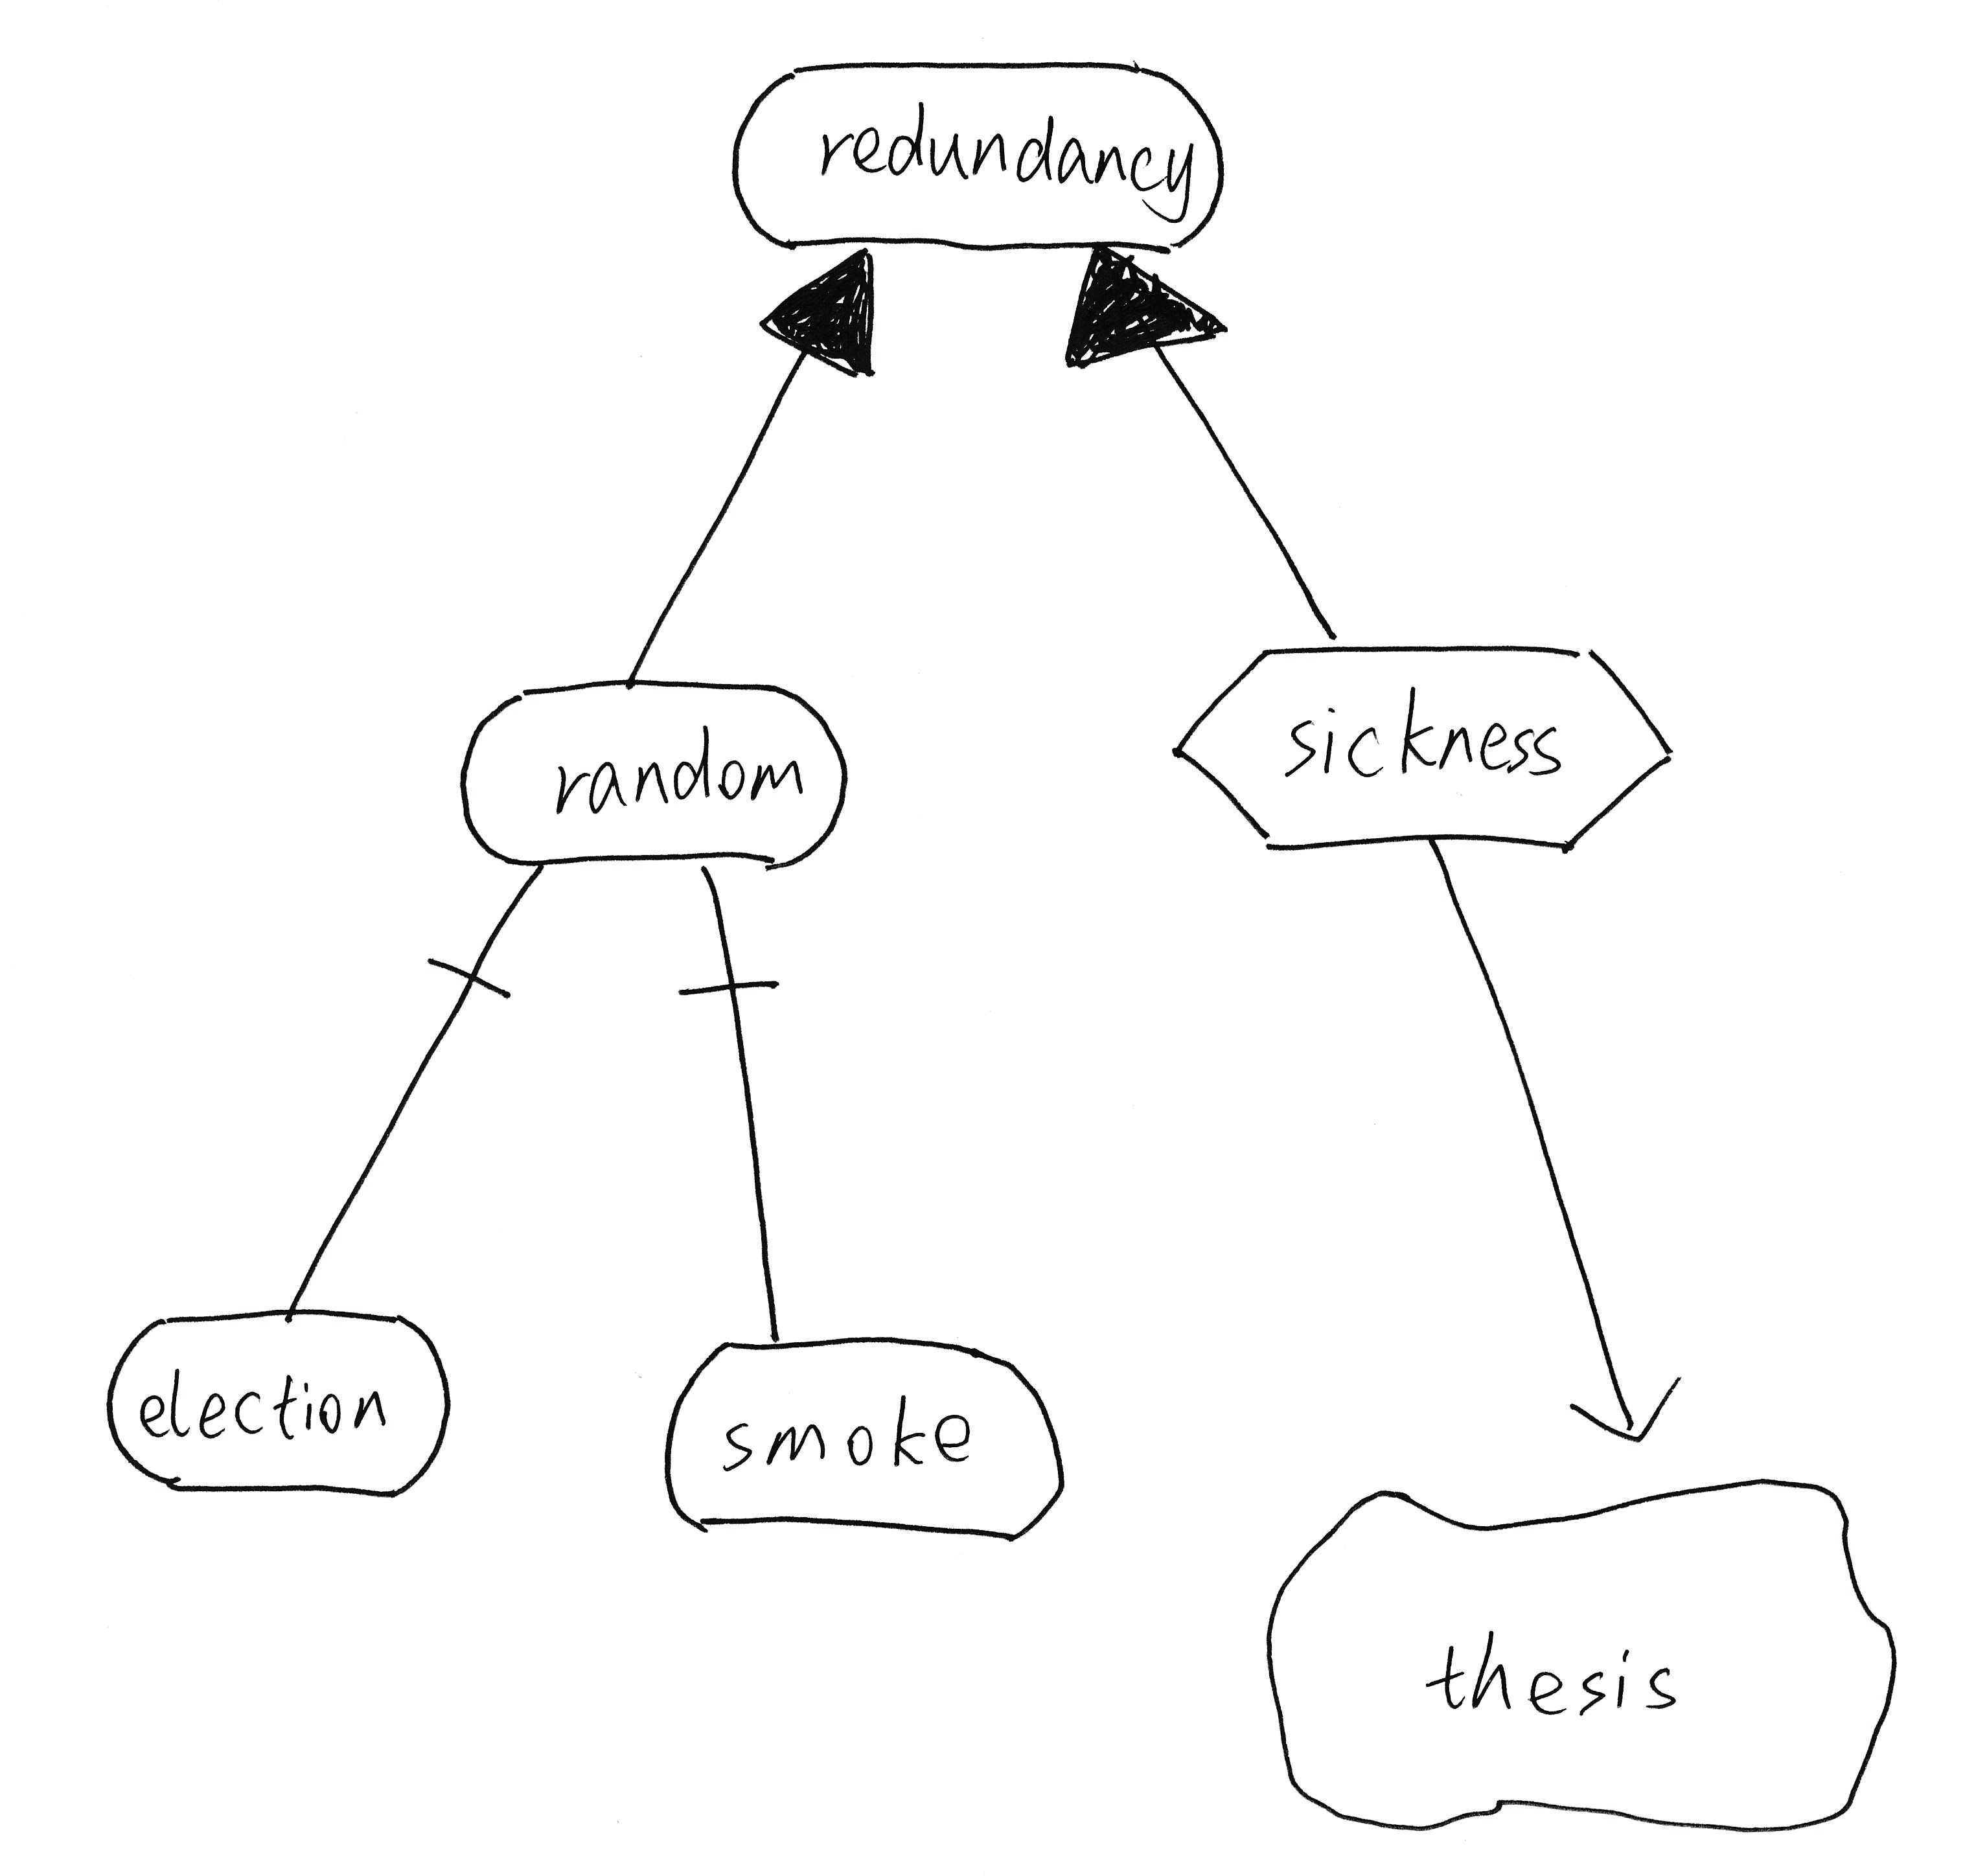 redundancy
random
sickness
election
smoke
thesis